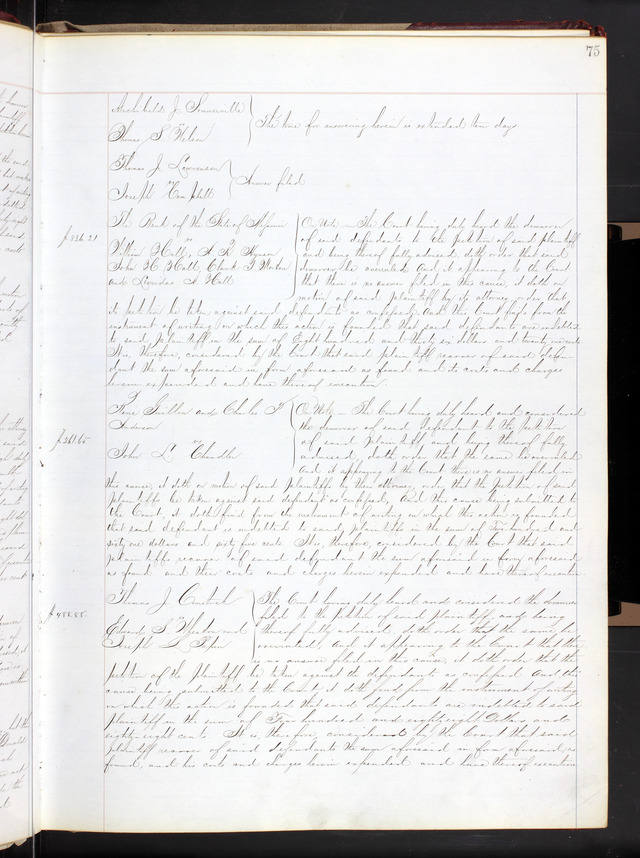 75
Archibald J Somerville
vs
Thomas S Nelson
The time for answering herein is extended ten days
Thomas J Lawrenson
vs
Joseph Campbell
Answer filed
$836.21
The Bank of the State of
vs
John H Hall,
and Leonidas A Hall
On Note — The Court having duly heard the demurrer
of said defendants to the petition of said plaintiff
and being thereof fully advised doth order that said
demurrer be overruled And it appearing to the Court
that there is no answer filed in this cause, it doth on
motion of said plaintiff by its attorney order that
its petition be taken against said defendants as confessed, And the Court finds from the
instrument of writing on which this action is founded that said defendants are indebted
to said plaintiff in the sum of Eight hundred and thirty six dollars and twenty one cents
It is, therefore, considered by the Court that said plaintiff recover of said defen-
dants the sum aforesaid in form aforesaid as found and its costs and charges
herein expended and have thereof execution
$261.65
and Charles F
Anderson
vs
John L Chandler
On Note — The Court having duly heard and considered
the demurrer of said defendant to the petition
of said plaintiffs and being thereof fully
advised, doth order that the same be overruled
And it appearing to the Court there is no answer filed in
this cause, it doth on motion of said plaintiffs by their attorney, order that the petition of said
plaintiffs be taken against said defendant as confessed, And this cause being submitted to
the Court, it doth find from the instrument of writing on which this action is founded
that said defendant is indebted to said plaintiffs in the sum of Two hundred and
sixty one dollars and sixty five cents It is, therefore, considered by the Court that said
plaintiffs recover of said defendant the sum aforesaid in form aforesaid
as found and their costs and charges herein expended and have thereof execution
Thomas J
vs
Edward S and
Joseph L
The Court having duly heard and considered the demurrer
filed to the petition of said plaintiff, and being
thereof fully advised doth order that the same be
overruled, And it appearing to the Court that there
is no answer filed in this cause, it doth order that the
petition of the plaintiff be taken against the defendants as confessed And this
cause being submitted to the Court, it doth find from the instrument of writing
on which the action is founded that said defendants are indebted to said
plaintiff in the sum of hundred and eighty eight Dollars, and
eighty eight cents It is, therefore, considered by the Court that said
plaintiff recover of said defendants the sum aforesaid in form aforesaid, as
found, and his costs and charges herein expended and have thereof execution